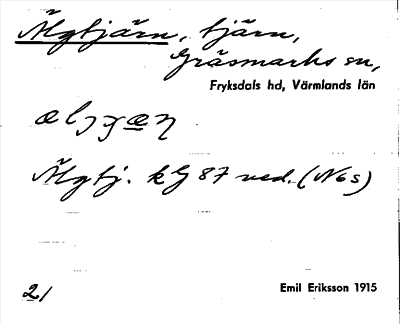 Älgtjärn, tjärn,
Gräsmarks sn,
Fryksdals hd, Värmlands län
Älgtj. kG 87 ved. (N6s)
21
Emil Eriksson 1915